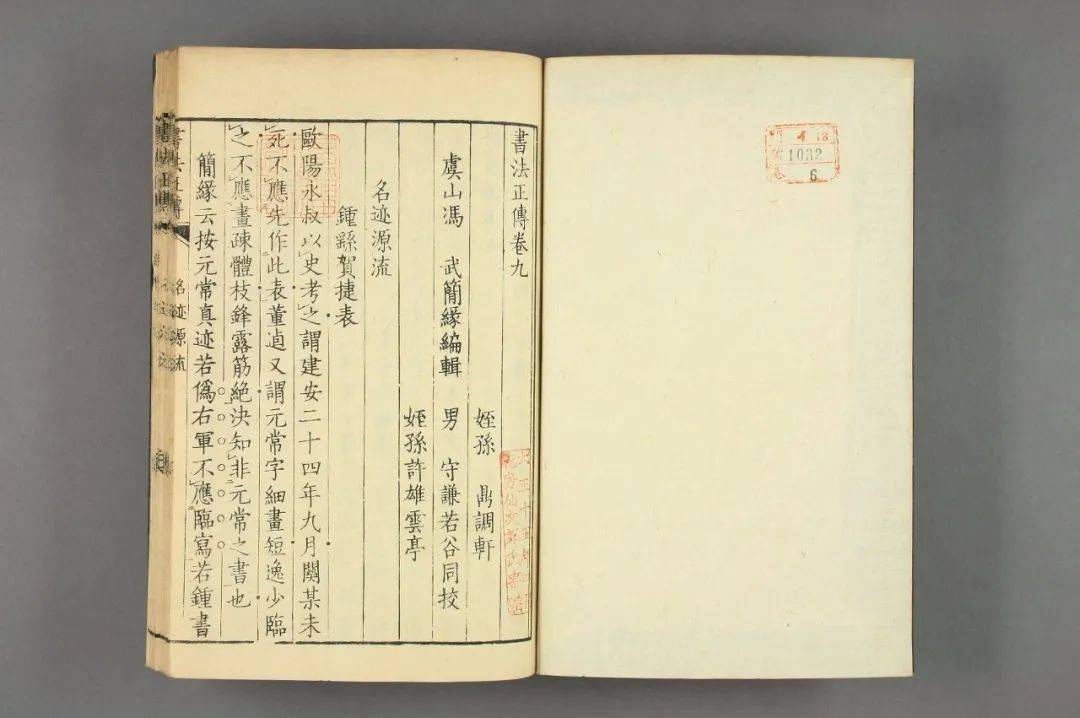 書法正傳卷九
姪孫 鼎調軒
虞山馮 武簡緣編輯 男 守謙若谷同挍
姪孫許雄雲亭
名迹源流
鍾繇賀捷表
歐陽永叔以史考之謂建安二十四年九月關某未
死不應先作此表董逌又謂元常字細畫短逸少臨
之不應畫疎體枝鋒露筋絶決知非元常之書也
簡緣云按元常真迹若僞右軍不應臨寫若鍾書
書法正傳
名迹源流
1032
6